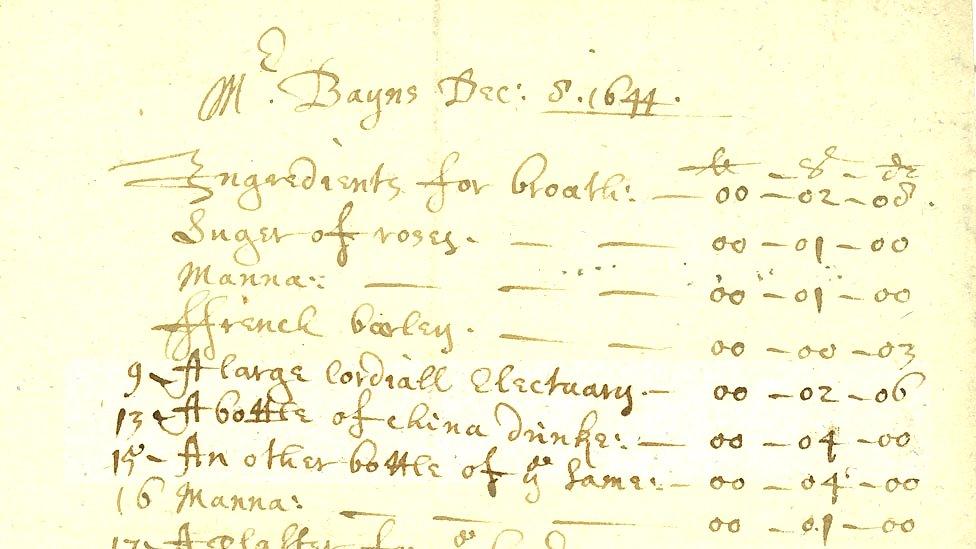 Mr. Bayns Dec: 8. 1644.
li – s – d
Ingredients for broath: — 00 – 02 – 08.
Suger of roses. — — 00 – 01 – 00
Manna: — — — 00 – 01 – 00
ffrench barley. — — 00 – 00 – 03
9 – A large Cordiall Electuary. — 00 – 02 – 06
13 – A bottle of China drinke: — 00 – 04 – 00
15 – An other bottle of ye same: – 00 – 04 – 00
16 Manna: — — — 00 – 01 – 00
17 – A plaster for ye